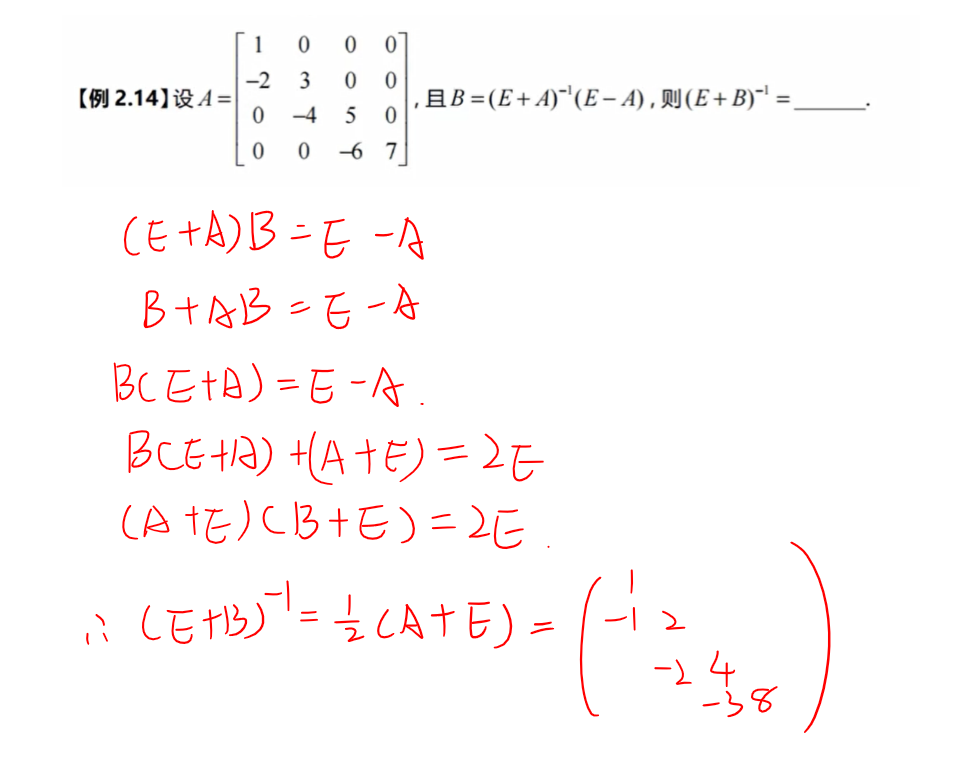 【例 2.14】设 A = [1 0 0 0; -2 3 0 0; 0 -4 5 0; 0 0 -6 7], 且 B = (E + A)⁻¹(E − A), 则 (E + B)⁻¹ = ______.
(E+A)B = E -A
B+AB = E -A
B(E+A) = E -A.
B(E+A) +(A+E) = 2E
(A+E)(B+E) = 2E.
∴ (E+B)⁻¹ = 1/2 (A+E) = (1
-1 2
-2 4
-3 8)